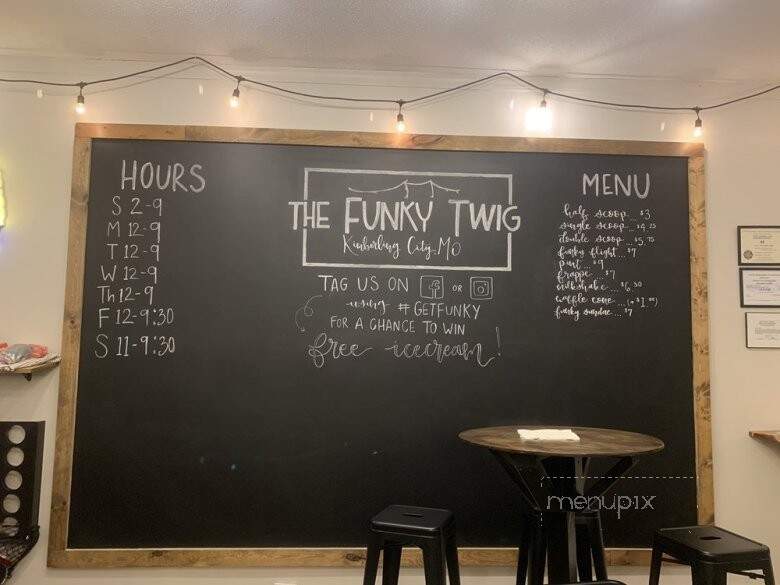 HOURS
S 2-9
M 12-9
T 12-9
W 12-9
Th 12-9
F 12-9:30
S 11-9:30
THE FUNKY TWIG
Kimberling City, MO
TAG US ON f OR
using #GETFUNKY
FOR A CHANCE TO WIN
free icecream!
MENU
half scoop... $3
single scoop... $4.25
double scoop... $5.75
funky flight... $7
pint... $9
frappe... $7
milkshake... $6.50
waffle cone... (+$1.00)
funky sundae... $7
menupix